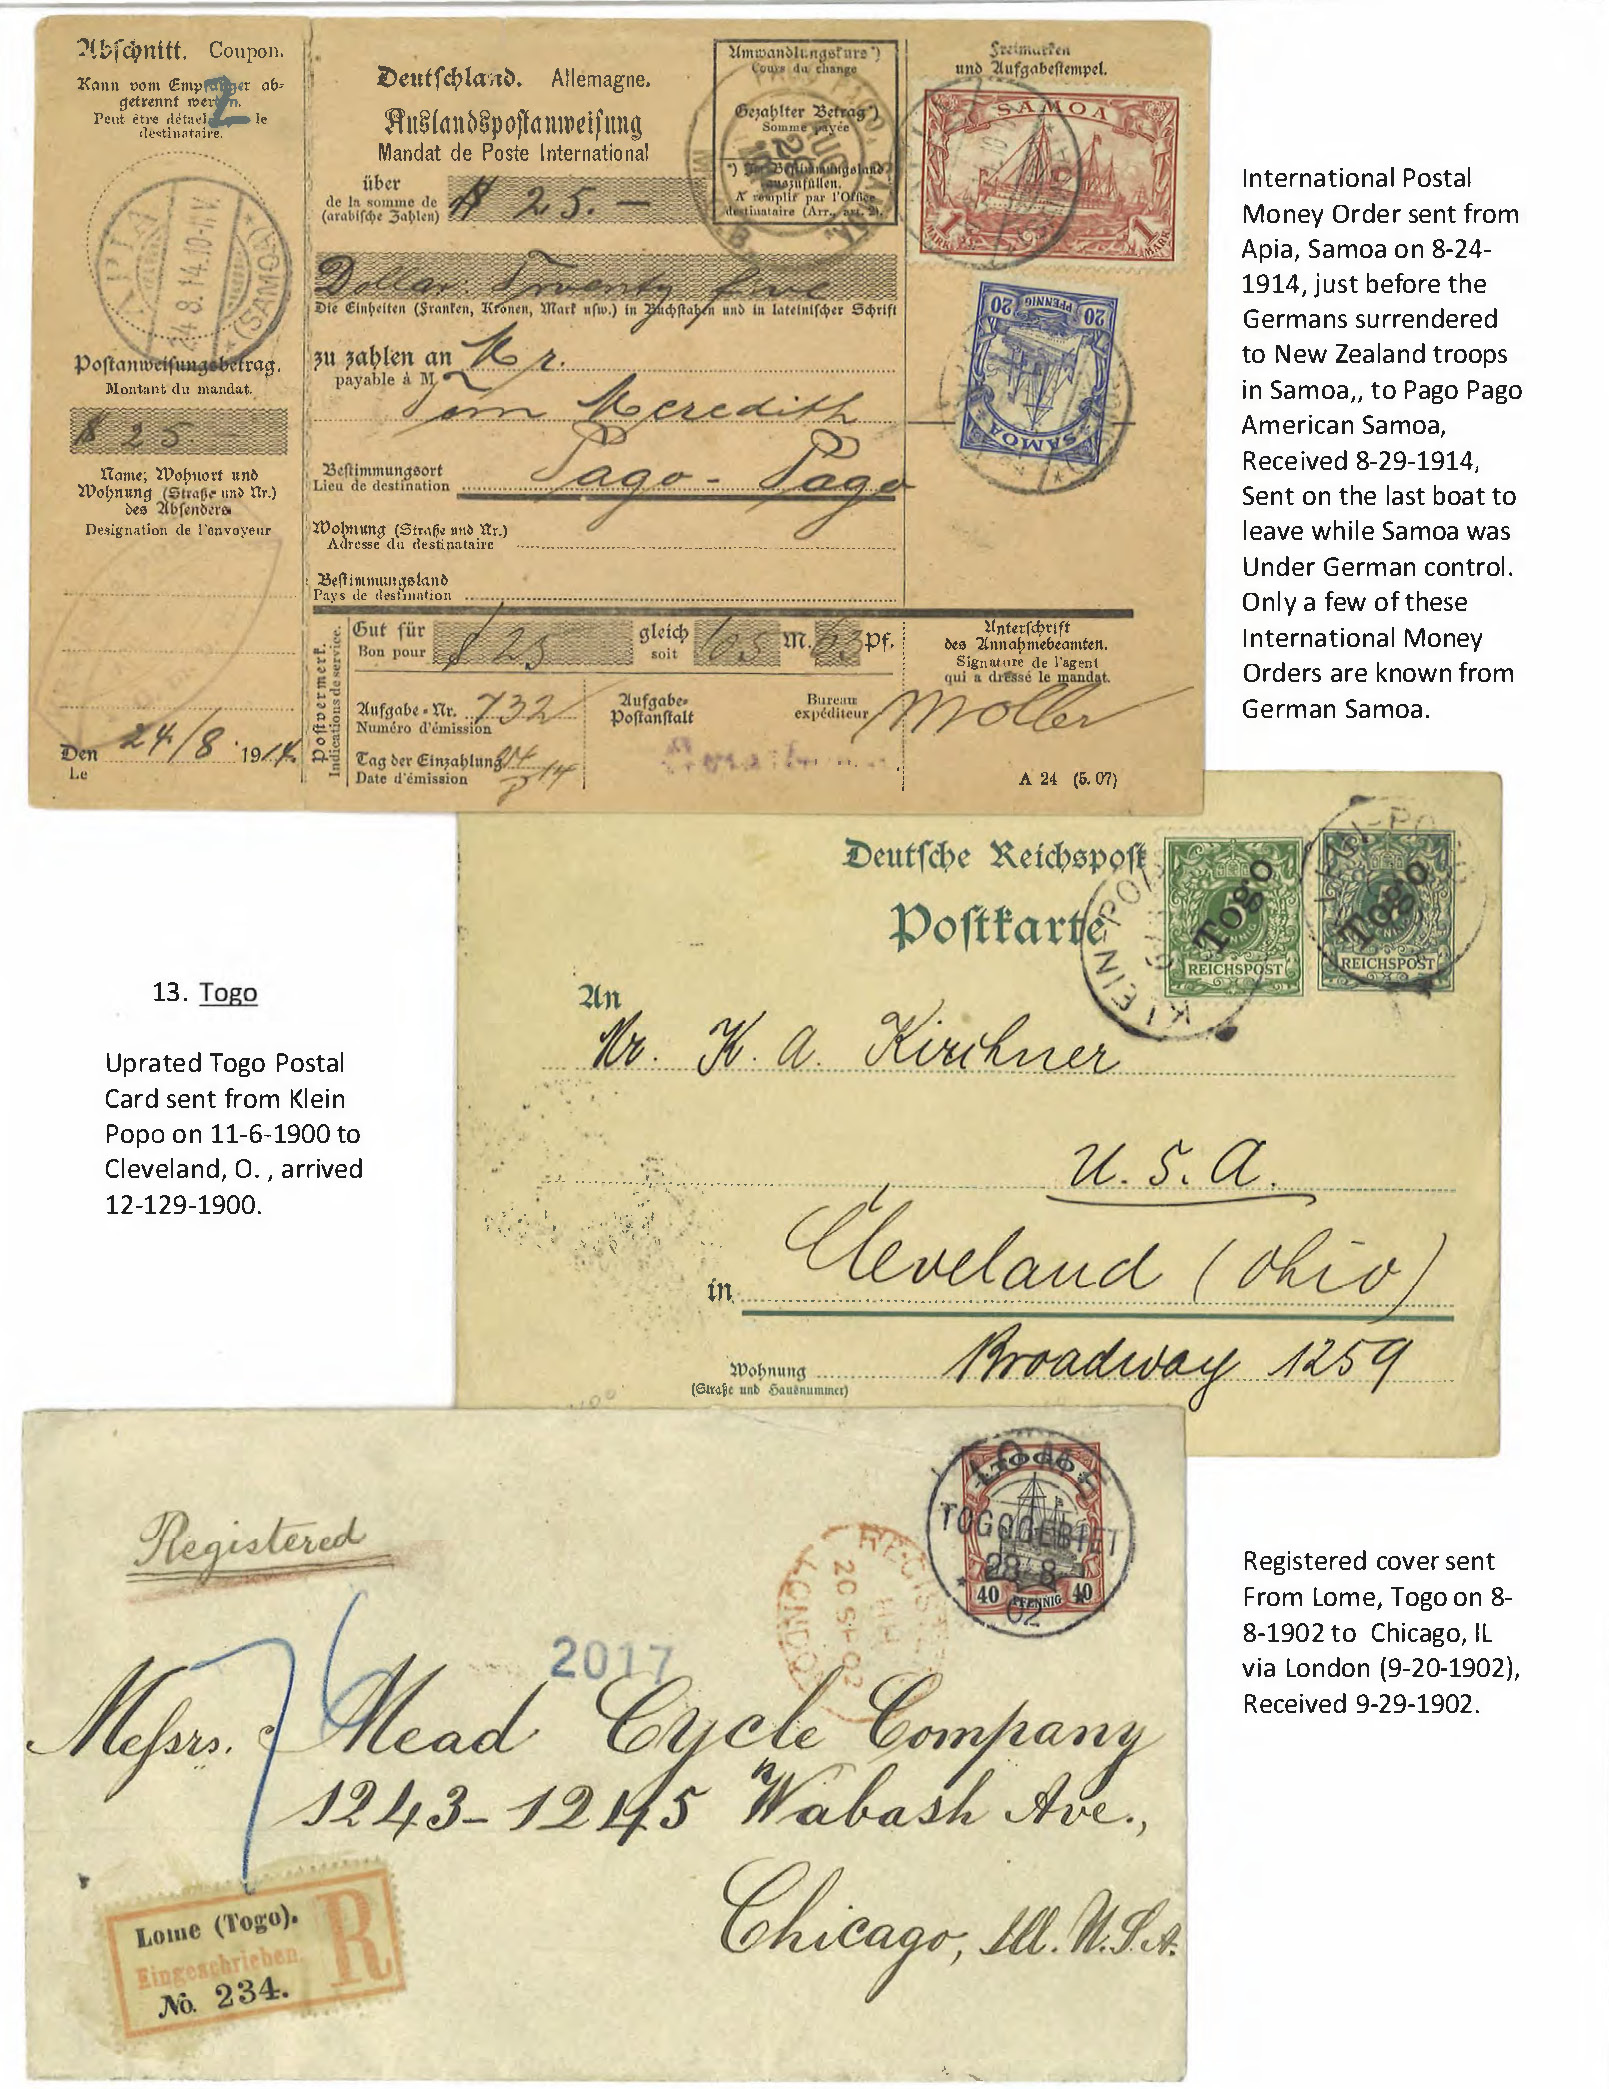 Abschnitt. Coupon.
Kann vom Empfänger ab-
getrennt werden.
Peut être détaché le
destinataire.
2
APIA
24.8.14.10-11V.
(SAMOA)
Postanweisungsbetrag.
Montant du mandat.
$ 25.-
Name, Wohnort und
Wohnung (Straße und Nr.)
des Absenders
Designation de l'envoyeur
Den 24/8 1914
Le
Deutschland. Allemagne.
Auslandspostanweisung
Mandat de Poste International
über
de la somme de
(arabische Zahlen)
$ 25.-
Umwandlungskurs*)
Cours du change
Gezahlter Betrag*)
Somme payée
*) Im Bestimmungsland
auszufüllen.
A remplir par l'Office
destinataire (Arr., art. 2).
PAGO PAGO, SAMOA.
AUG
M. O. B.
Dollar: Twenty five
Die Einheiten (Franken, Kronen, Mark usw.) in Buchstaben und in lateinischer Schrift
zu zahlen an Mr.
payable à M
Tom Meredith
Bestimmungsort
Lieu de destination
Pago - Pago
Wohnung (Straße und Nr.)
Adresse du destinataire
Bestimmungsland
Pays de destination
Postvermerk.
Indications de service.
Gut für
Bon pour
$ 25
gleich
soit
105 M. 63 Pf.
Aufgabe-Nr. 732
Numéro d'émission
Tag der Einzahlung 24/8 14
Date d'émission
Aufgabe-
Postanstalt
Bureau
expéditeur
Freimarken
und Aufgabestempel.
SAMOA
1 MARK 1 MARK
20 PFENNIG 20
SAMOA
Unterschrift
des Annahmebeamten.
Signature de l'agent
qui a dressé le mandat.
Moller
A 24 (5. 07)
International Postal
Money Order sent from
Apia, Samoa on 8-24-
1914, just before the
Germans surrendered
to New Zealand troops
in Samoa,, to Pago Pago
American Samoa,
Received 8-29-1914,
Sent on the last boat to
leave while Samoa was
Under German control.
Only a few of these
International Money
Orders are known from
German Samoa.
13. Togo
Uprated Togo Postal
Card sent from Klein
Popo on 11-6-1900 to
Cleveland, O. , arrived
12-129-1900.
Deutsche Reichspost
Postkarte
KLEIN-POPO
Togo
REICHSPOST
KLEIN-POPO
Togo
REICHSPOST
An
Mr. K. A. Kirchner
U. S. A.
in Cleveland (Ohio)
Wohnung
(Straße und Hausnummer)
Broadway 1259
Registered
2017
REGISTERED
20 SP 02
LONDON
TOGO
40 PFENNIG 40
LOME
TOGOGEBIET
28 8
02
76
Messrs. Mead Cycle Company
1243-1245 Wabash Ave.,
Chicago, Ill. U.S.A.
Lome (Togo).
Eingeschrieben.
No. 234.
R
Registered cover sent
From Lome, Togo on 8-
8-1902 to Chicago, IL
via London (9-20-1902),
Received 9-29-1902.